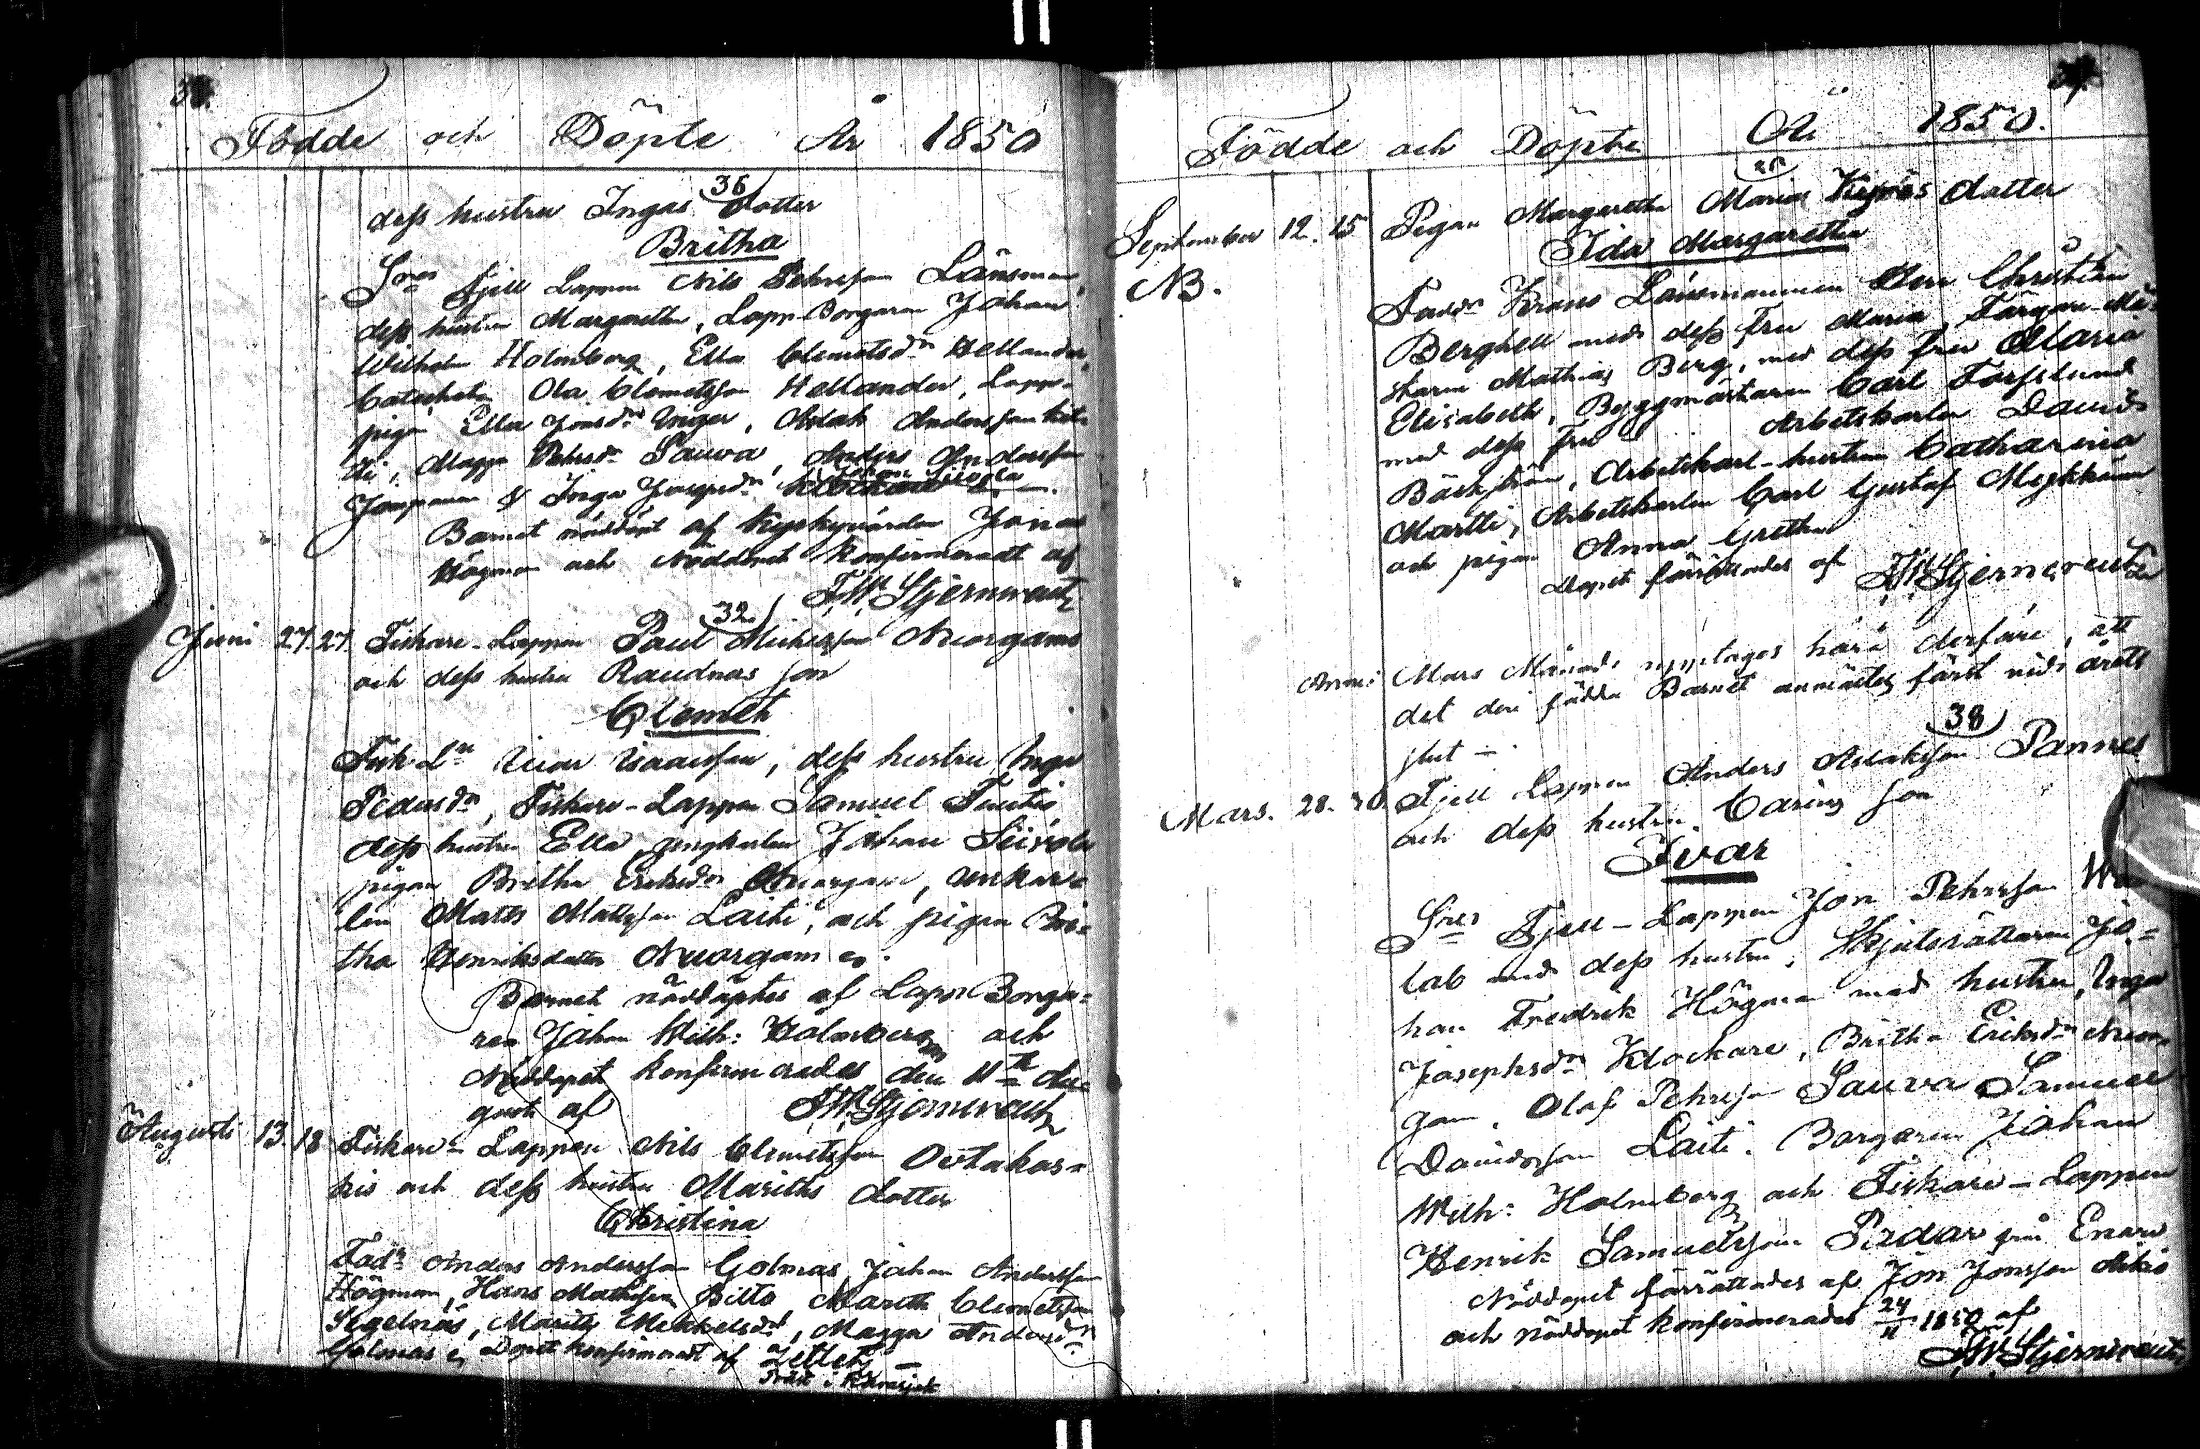 Födde och Döpte År 1850
dess hustru Ingas dotter
36
Britha
Fjell Lappen Nils Pehrsson Länsman,
dess hustru Margaretha, Lapp-Borgaren Johan
Wilhelm Holmberg, Ella Clemetsdr Hellander,
Catecheten Ola Clemetsson Hellander, Lapp-
pigan Ella Jonsdr Unger, Aslak Andersson
Magga Pehrsdr Sauva, Anders Andersson
& Inga Josepsdr
Barnet nöddöpt af Kyrkvärden Jonas
Högman och Nöddopet konfirmeradt af
F.W. Stjerncreutz
32
Juni 27. 27. Fiskare-Lappen Paul Nuorgams
och dess hustru Raudnas son
Clemet
Fisk.Ln Isaacsson, dess hustru Inga
Pedersdr, Fiskare-Lappen Samuel
dess hustru Ella, ungkarlen Johan Seirola
pigan Britha Eriksdr Nuorgam, unkar-
len Matts Mattsson Laiti, och pigan Bri-
tha Henriksdotter Nuorgam
Barnet nöddöptes af Lapp Borga-
ren Johan Wilh: Holmberg och
Nöddopet konfirmerades den 11te Au-
gusti af F.W. Stjerncreutz
Augusti 13. 18 Fiskare-Lappen Nils Clemetsson Ovtakos-
kis och dess hustru Mariths dotter
Christina
Fadr Anders Andersson Golmas, Johan Andersson
Högman, Hans Mathisen Bilto, Mareth Clemetsen
Segelnäs, Marith Mekkelsdr, Magga Andersdn
Golmas Dopet konfirmeradt af Zetlitz
Präst i
Födde och Döpte År 1850.
September 12. 15 Pigan Margaretha Marias dotter
Ida Margaretha
NB.
Faddr Krono Länsmannen Christian
Berghell med dess fru Maria, Färgare-Mä-
staren Mathias Berg, med dess fru Maria
Elisabeth, Byggmästaren Carl Forsslund
med dess fru Arbetskarlen David
Bäckström, Arbetskarl-hustrun Catharina
Martti, Arbetskarlen Carl Gustaf
och pigan Anna Gretha
Dopet förrättades af F.W. Stjerncreutz
Anm: Mars Månad upptages härå derföre, att
det då födda Barnet anmältes först vid årets
slut -
38
Mars. 28. 30 Fjell Lappen Anders Aslaksson Pannes
och dess hustru Carins son
Ivar
Fjell-Lappen Jon Pehrsson
lab med dess hustru, Skjutsrättaren Jo-
han Fredrik Högman med hustru, Inga
Josephsdr Klockare, Britha Eriksdr Nuor-
gam, Olaf Pehrsson Sauva Samuel
Davidsson Laiti, Borgaren Johan
Wilh: Holmberg och Fiskare-Lappen
Henrik Samuelsson Padar från Enare
Nöddopet förrättades af Jon Jonsson
och nöddopet konfirmerades 24/11 1850 af
F.W. Stjerncreutz